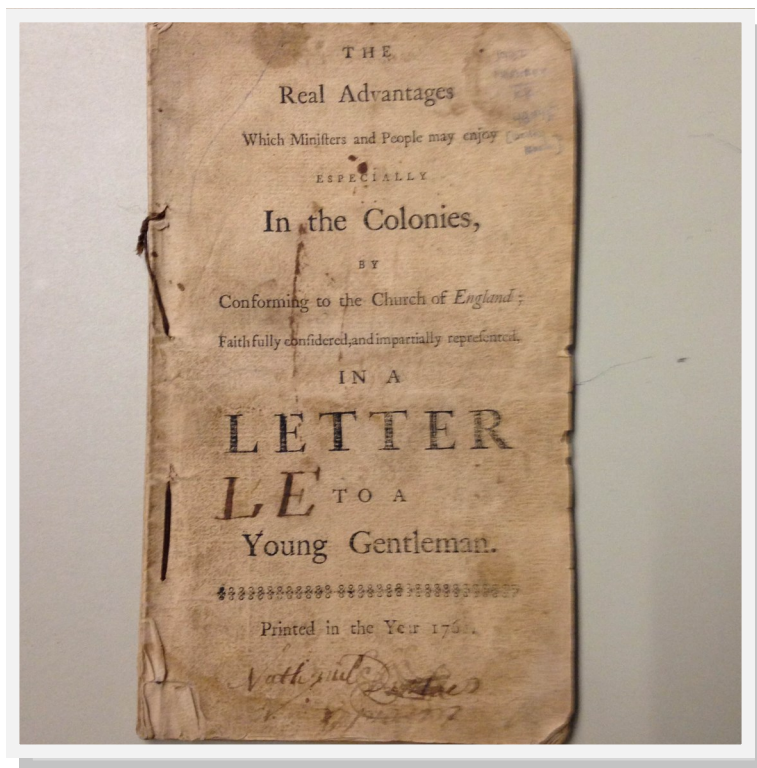 THE
Real Advantages
Which Miniſters and People may enjoy
ESPECIALLY
In the Colonies,
BY
Conforming to the Church of England;
Faithfully conſidered, and impartially repreſented,
IN A
LETTER
LE TO A
Young Gentleman.
Printed in the Year